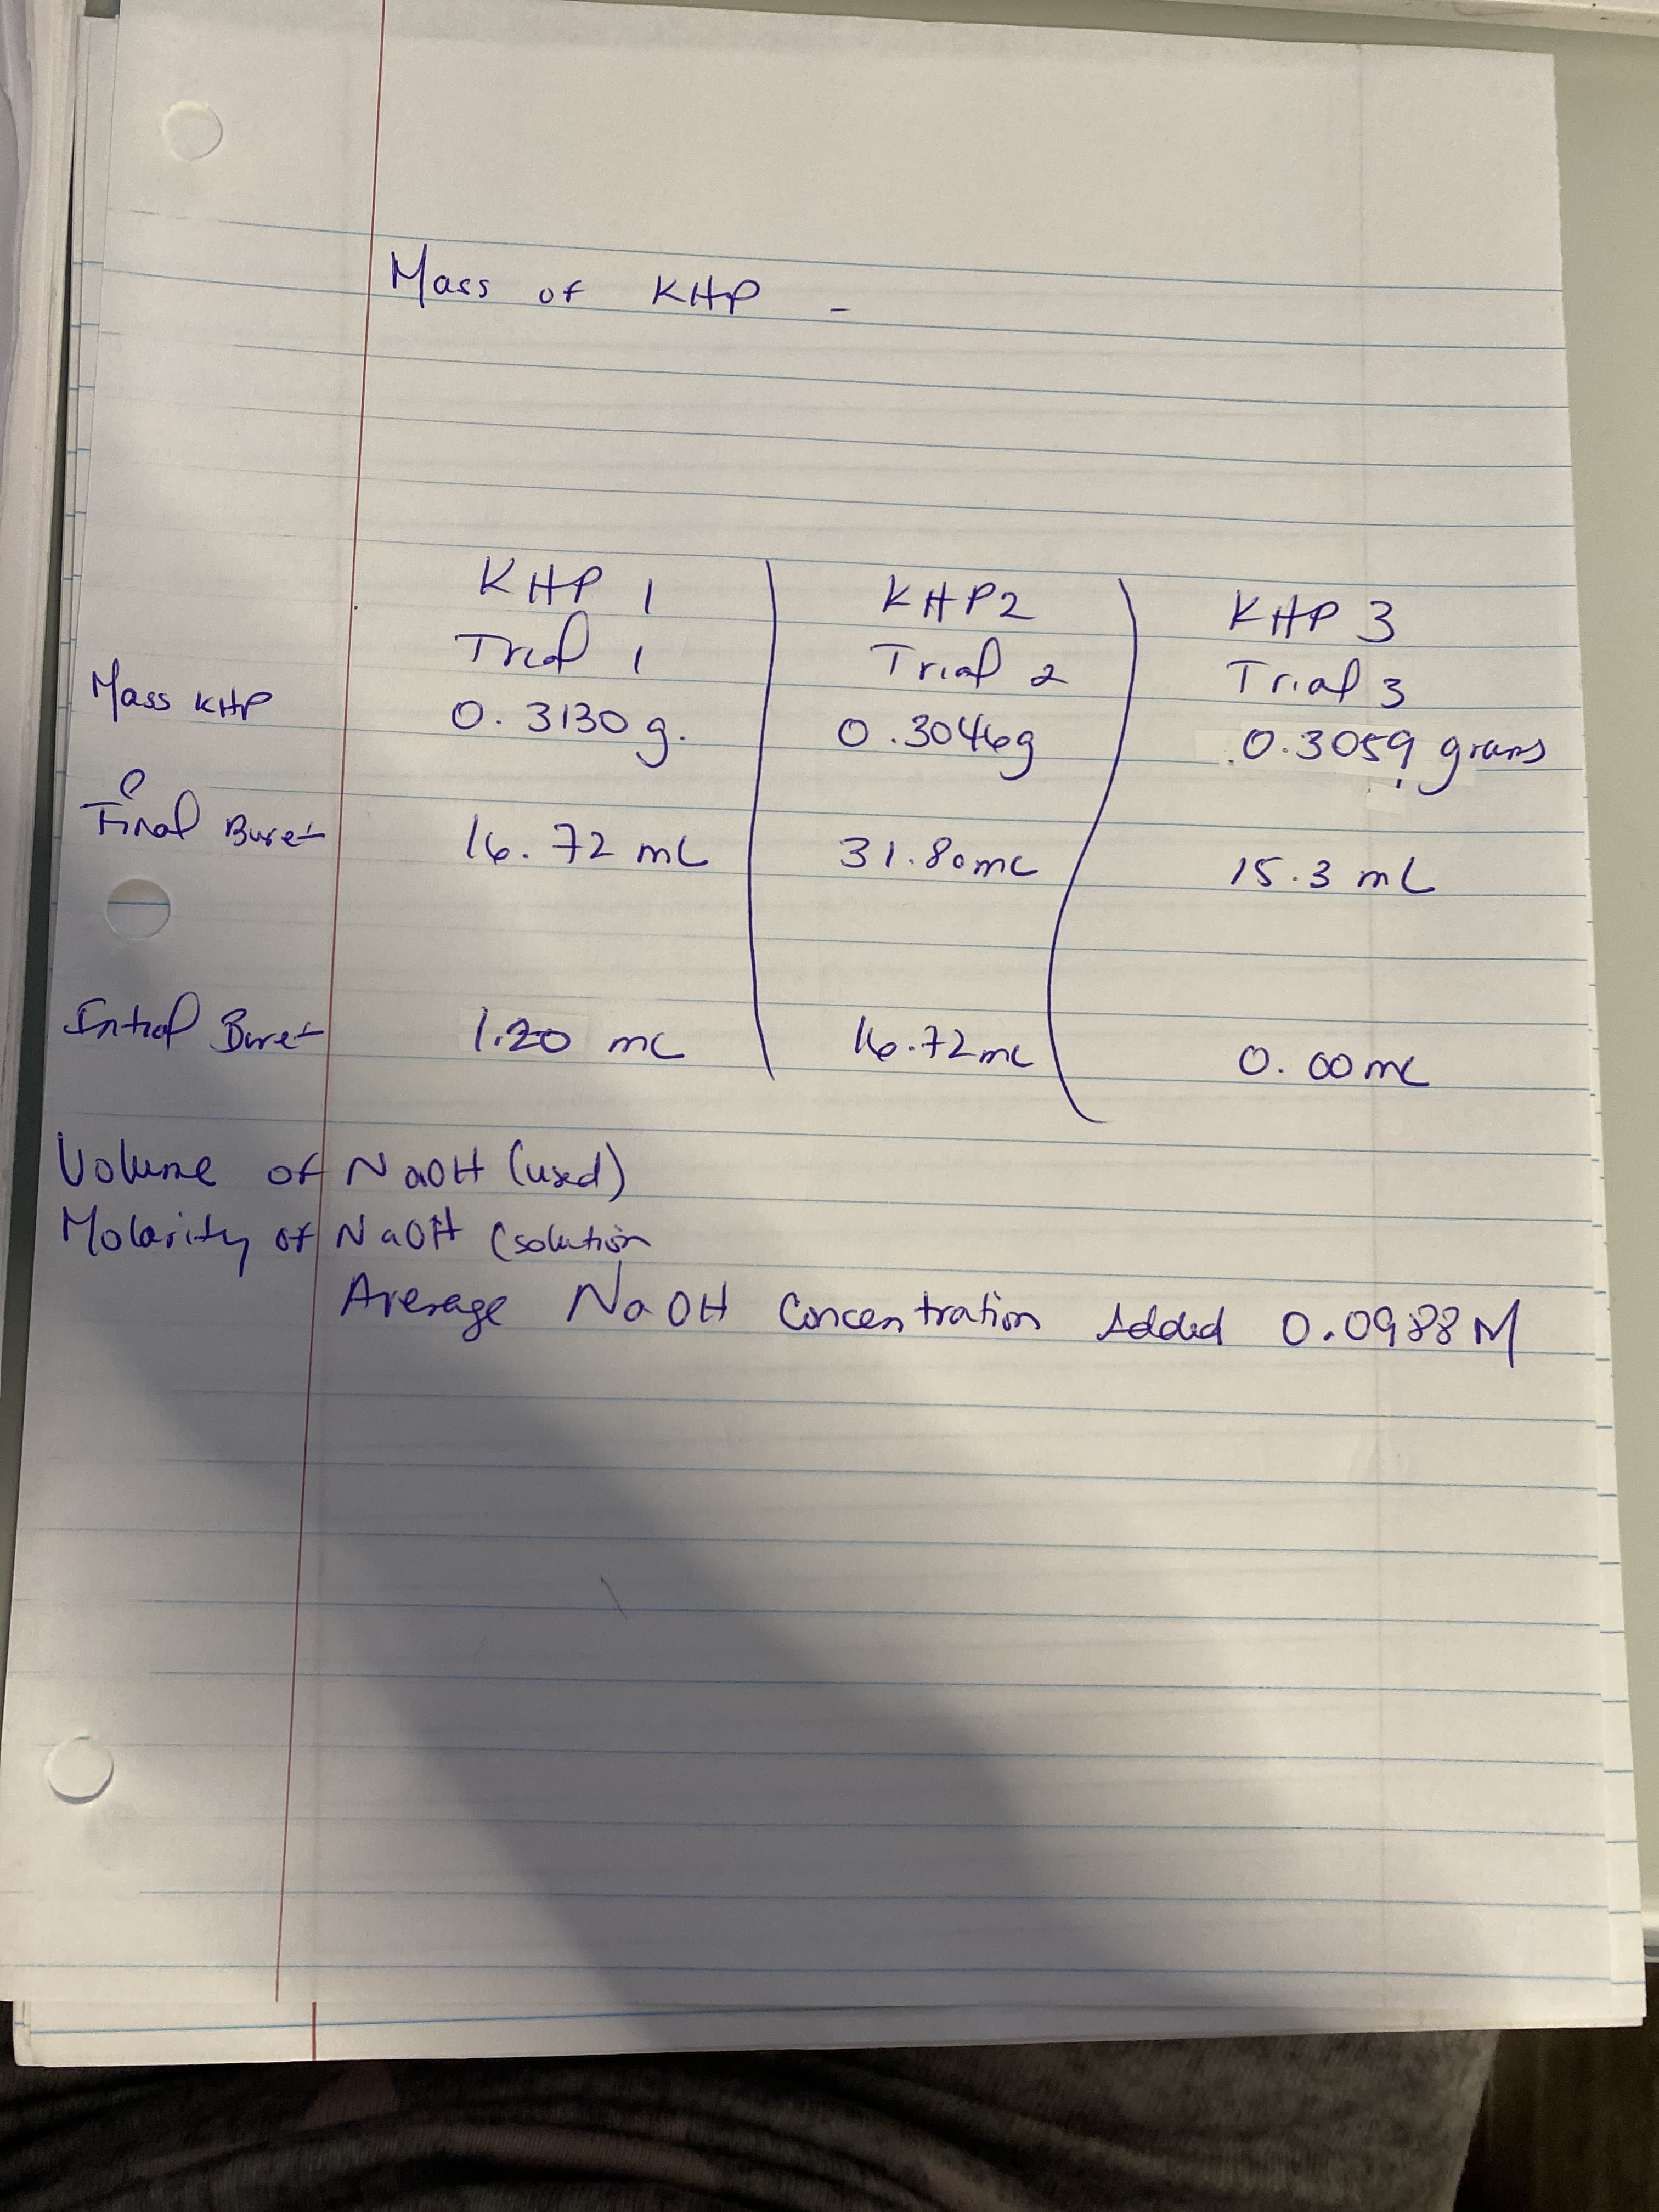 Mass of KHP -
KHP 1 KHP2 KHP 3
Trial 1 Trial 2 Trial 3
Mass KHP 0.3130 g. 0.3046g 0.3059 grams
Final Buret 16.72 mL 31.80mL 15.3 mL
Initial Buret 1.20 mL 16.72mL 0.00mL
Volume of NaOH (used)
Molarity of NaOH (solution
Average NaOH Concentration Added 0.0988 M